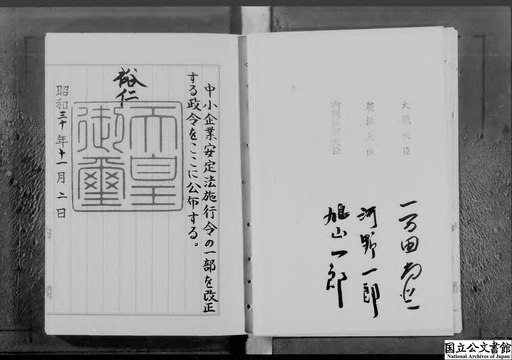 大蔵大臣
農林大臣
内閣総理大臣
一万田尚登
河野一郎
鳩山一郎
中小企業安定法施行令の一部を改正
する政令をここに公布する。
裕仁
天皇
御璽
昭和三十年十一月二日
国立公文書館
National Archives of Japan